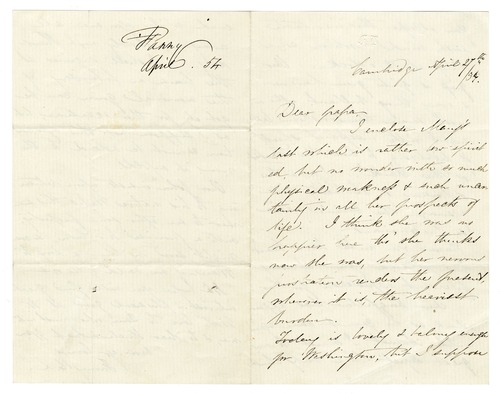 Fanny
April. 54
Cambridge April 27th
/54.
Dear papa
I enclose Mary's
last which is rather un spirit
ed, but no wonder with so much
physical weakness & such uncer
tainty in all her prospects of
life. I think she was no
happier here tho' she thinks
now she was, but her nervous
prostration renders the present,
wherever it is, the heaviest
burden.
Today is lovely & balmy enough
for Washington, but I suppose